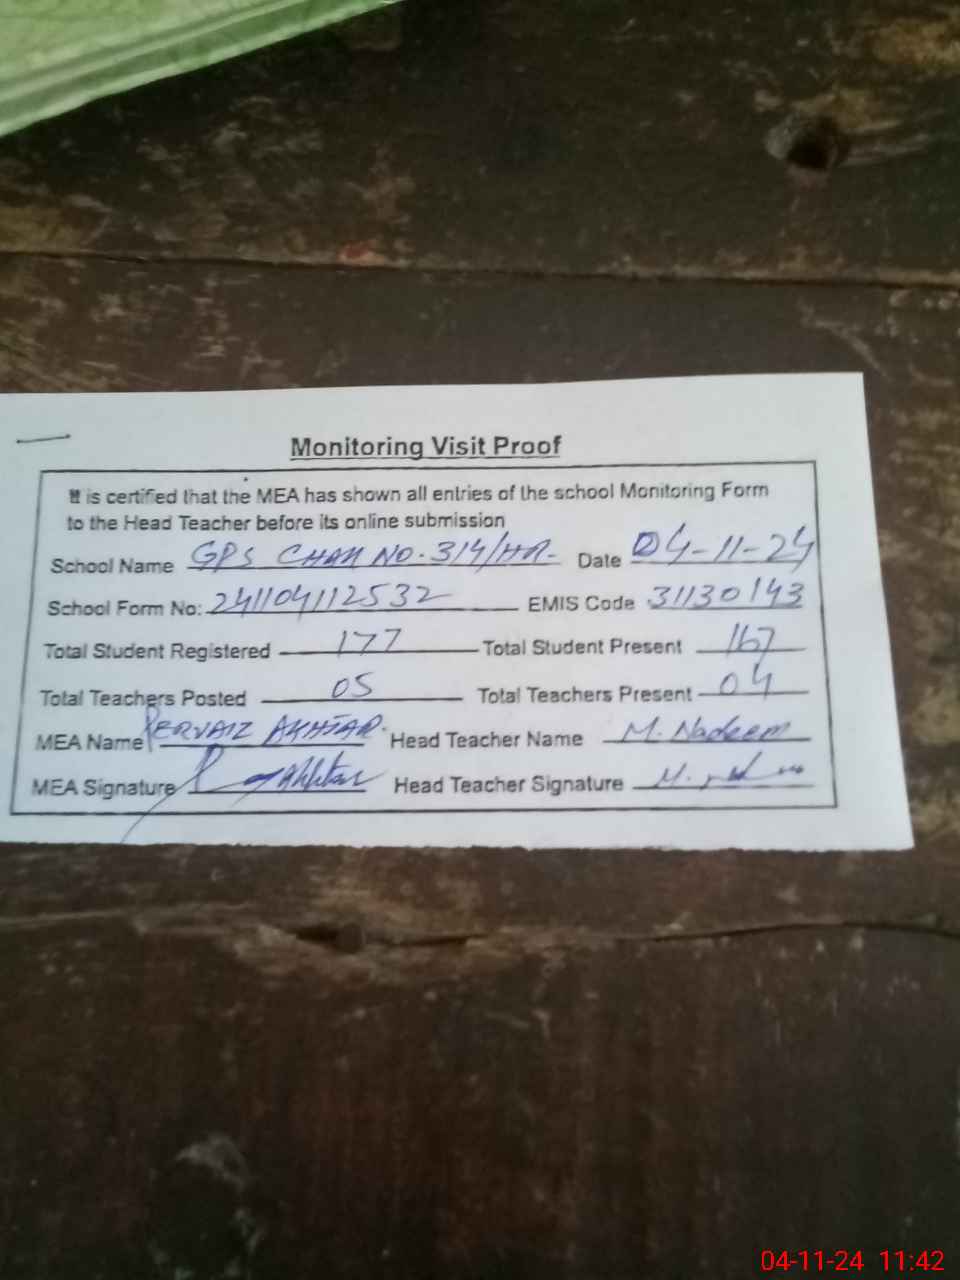 Monitoring Visit Proof
It is certified that the MEA has shown all entries of the school Monitoring Form
to the Head Teacher before its online submission
School Name GPS CHAK NO. 314/HR- Date 04-11-24
School Form No: 241104112532 EMIS Code 31130143
Total Student Registered 177 Total Student Present 167
Total Teachers Posted 05 Total Teachers Present 04
MEA Name PERVAIZ AKHTAR. Head Teacher Name M. Nadeem
MEA Signature Akhtar Head Teacher Signature M.
04-11-24 11:42